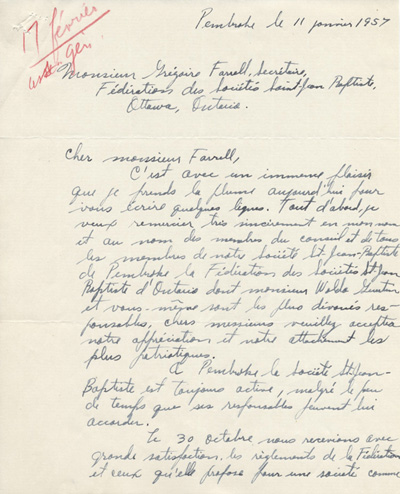 Pembroke le 11 janvier 1957
17 février
ass. gén.
Monsieur Grégoire Farrell, Secrétaire,
Fédérations des Sociétés Saint-Jean Baptiste,
Ottawa, Ontario.
Cher monsieur Farrell,
C'est avec un immense plaisir
que je prends la plume aujourd'hui pour
vous écrire quelques lignes. Tout d'abord, je
veux remercier très sincèrement en mon nom
et au nom des membres du conseil et de tous
les membres de notre Société St. Jean-Baptiste
de Pembroke la Fédération des Sociétés St. Jean
Baptiste d'Ontario dont monsieur Waldo
et vous-même sont les plus dévoués res-
ponsables, chers messieurs veuillez accepter
notre appréciation et notre attachement les
plus patriotiques.
À Pembroke la Société St. Jean-
Baptiste est toujours active, malgré le peu
de temps que ses responsables peuvent lui
accorder.
Le 30 octobre nous recevions avec
grande satisfaction, les règlements de la Fédération
et ceux qu'elle propose pour une société comme